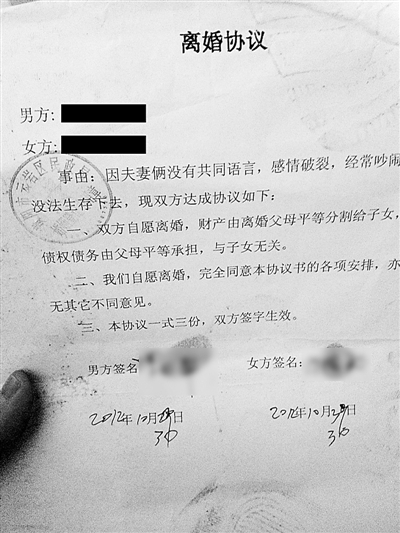 离婚协议
男方:
女方:
事由：因夫妻俩没有共同语言，感情破裂，经常吵闹
没法生存下去，现双方达成协议如下：
一、双方自愿离婚，财产由离婚父母平等分割给子女，
债权债务由父母平等承担，与子女无关。
二、我们自愿离婚，完全同意本协议书的各项安排，亦
无其它不同意见。
三、本协议一式三份，双方签字生效。
男方签名 女方签名：
2012年10月 日 2012年10月 日
30 30
市云岩区民政